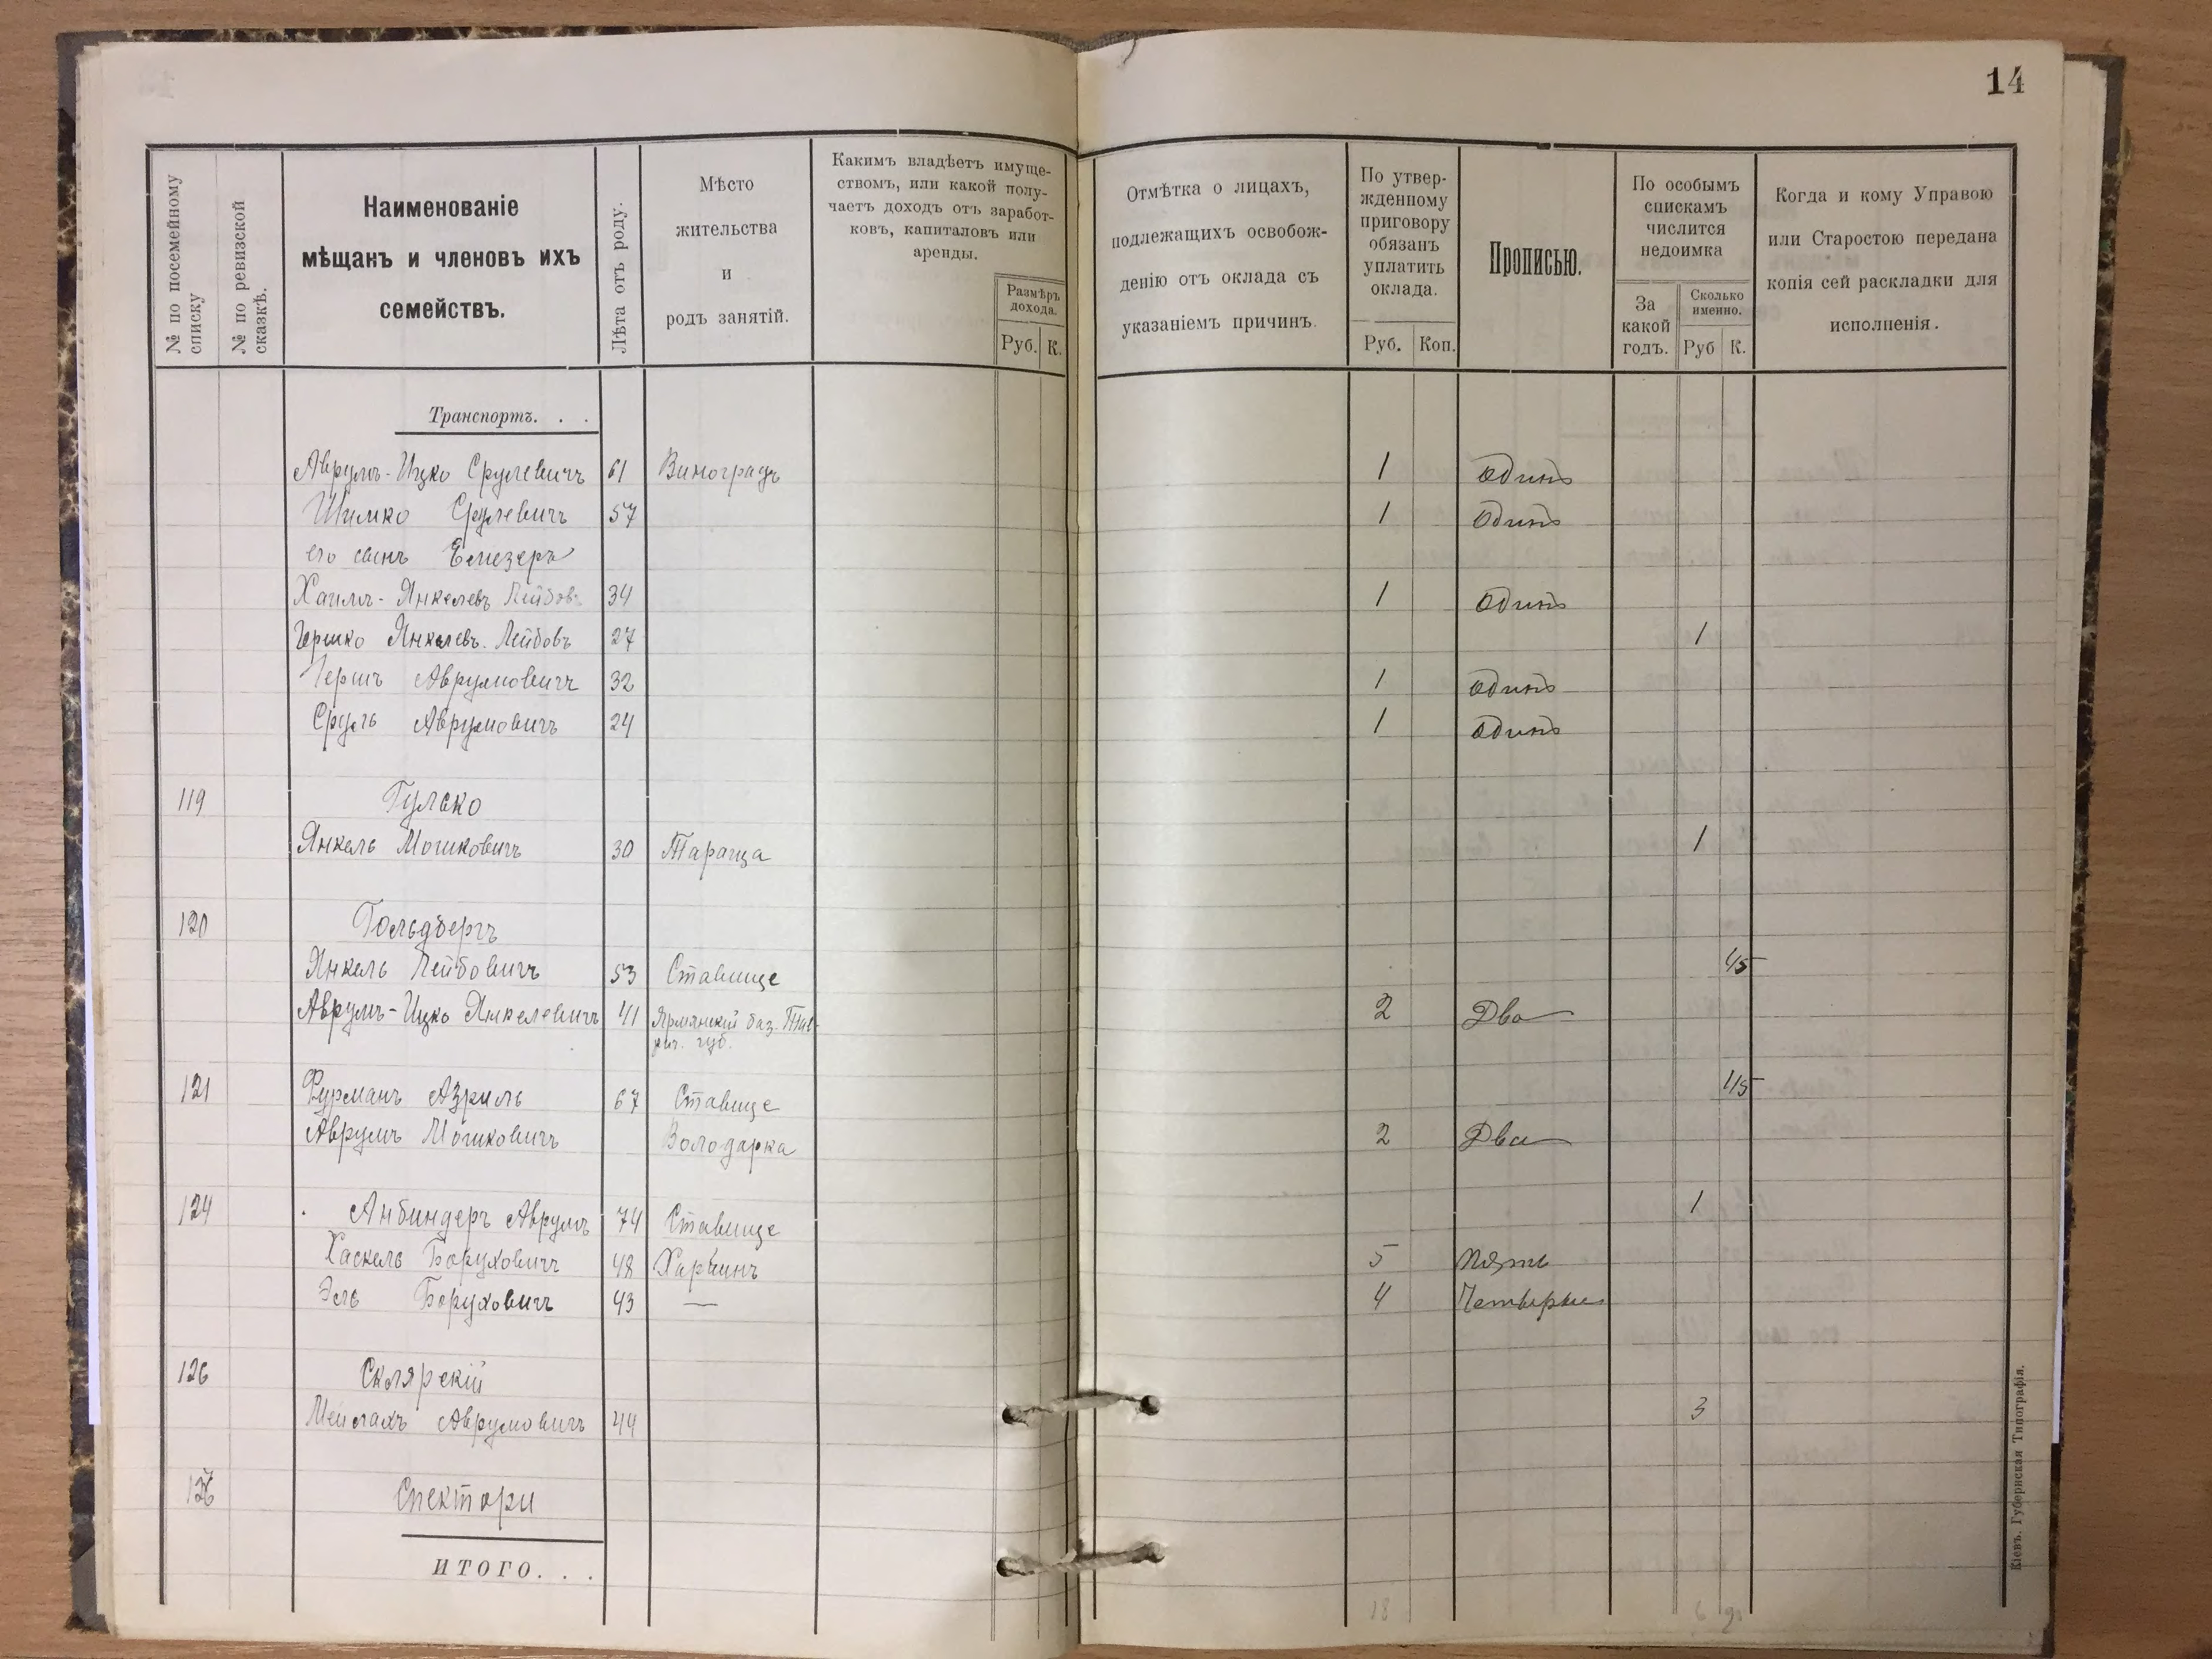 14
№ по посемейному списку
№ по ревизской сказкѣ.
Наименованіе
мѣщанъ и членовъ ихъ
семействъ.
Лѣта отъ роду.
Мѣсто
жительства
и
родъ занятій.
Какимъ владѣетъ имуще-
ствомъ, или какой полу-
чаетъ доходъ отъ заработ-
ковъ, капиталовъ или
аренды.
Размѣръ
дохода.
Руб. К.
Отмѣтка о лицахъ,
подлежащихъ освобож-
денію отъ оклада съ
указаніемъ причинъ.
По утвер-
жденному
приговору
обязанъ
уплатить
оклада.
Руб. Коп.
Прописью.
По особымъ
спискамъ
числится
недоимка
За
какой
годъ.
Сколько
именно.
Руб К.
Когда и кому Управою
или Старостою передана
копія сей раскладки для
исполненія.
Транспортъ. . .
Аврумъ-Ицко Срулевичъ 61 Виноградъ 1 Одинъ
Шимко Срулевичъ 57 1 Одинъ
его сынъ Елиезеръ
Хаимъ-Янкелевъ Лейбовъ 34 1 Одинъ
Гершко Янкелевъ Лейбовъ 27 1
Гершъ Аврумовичъ 32 1 Одинъ
Сруль Аврумовичъ 24 1 Одинъ
119 Гулько
Янкель Мошковичъ 30 Тараща 1
120 Гольдбергъ
Янкель Лейбовичъ 53 Ставище 45
Аврумъ-Ицко Янкелевичъ 41 Армянскій баз. Тав- 2 Два
рич. губ.
121 Фурманъ Азриль 67 Ставище 45
Аврумъ Мошковичъ Володарка 2 Два
124 Анбиндеръ Аврумъ 74 Ставище 1
Хаскель Боруховичъ 48 Харбинъ 5 Пять
Эль Боруховичъ 43 — 4 Четыре
126 Склярскій
Мейлахъ Аврумовичъ 44 3
Спектори
ИТОГО. . .
18 6 90
Кіевъ. Губернская Типографія.